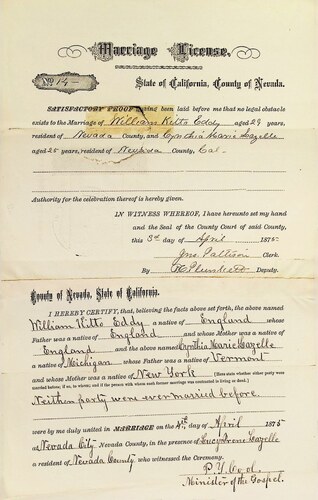 Marriage License.
No. 14
State of California, County of Nevada.
SATISFACTORY PROOF having been laid before me that no legal obstacle
exists to the Marriage of William Kitto Eddy aged 29 years,
resident of Nevada County, and Cynthia Marie Gazelle
aged 25 years, resident of Nevada County, Cal.
Authority for the celebration thereof is hereby given.
IN WITNESS WHEREOF, I have hereunto set my hand
and the Seal of the County Court of said County,
this 3d day of April 1875
Jno. Pattison Clerk.
By Deputy.
County of Nevada, State of California.
I HEREBY CERTIFY, that, believing the facts above set forth, the above named
William Kitto Eddy a native of England whose
Father was a native of England and whose Mother was a native of
England and the above named Cynthia Marie Gazelle
a native of Michigan whose Father was a native of Vermont
and whose Mother was a native of New York (Here state whether either party were
married before, if so, to whom; and if the person with whom such former marriage was contracted be living or dead.)
Neither party were ever married before.
were by me duly united in MARRIAGE on the 4th day of April 1875
at Nevada City Nevada County, in the presence of Lucy Irene Gazelle
a resident of Nevada County who witnessed the Ceremony.
P. Y. Cool,
Minister of the Gospel.